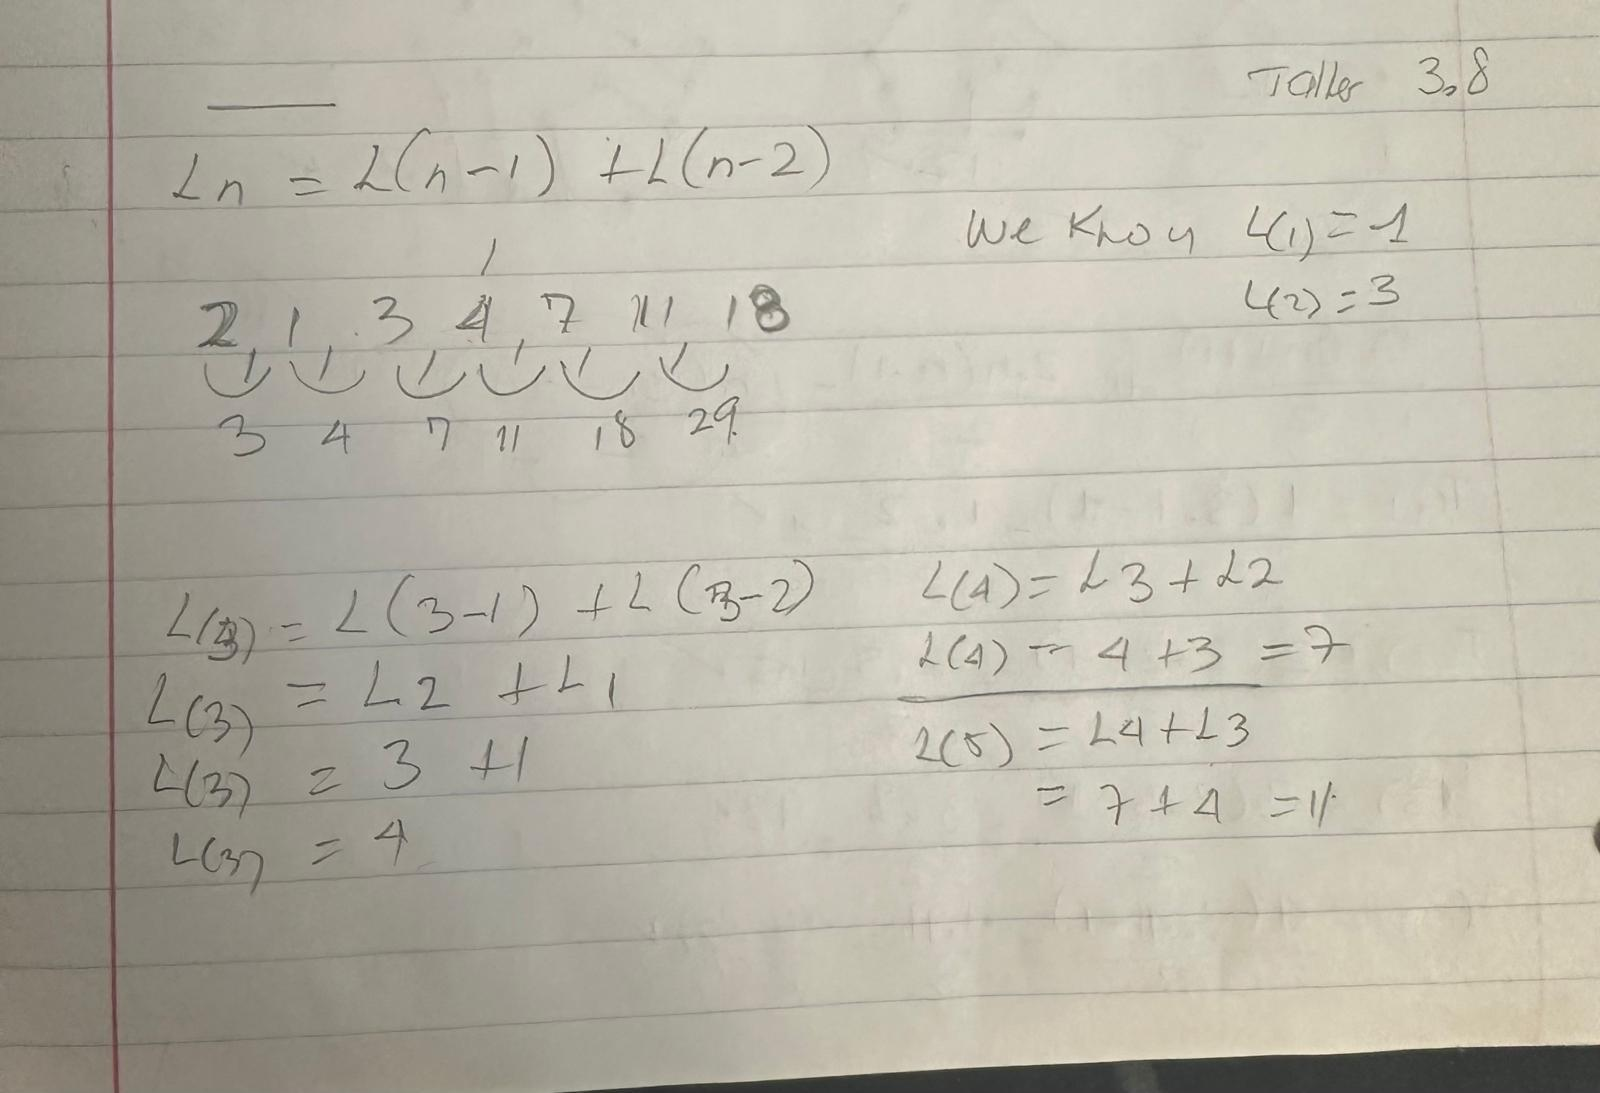 Taller 3.8
Ln = L(n-1) + L(n-2)
We Know L(1) = 1
L(2) = 3
2, 1, 3 4, 7 11 18
3 4 7 11 18 29
L(3) = L(3-1) + L(3-2)
L(3) = L2 + L1
L(3) = 3 + 1
L(3) = 4
L(4) = L3 + L2
L(4) = 4 + 3 = 7
L(5) = L4 + L3
= 7 + 4 = 11